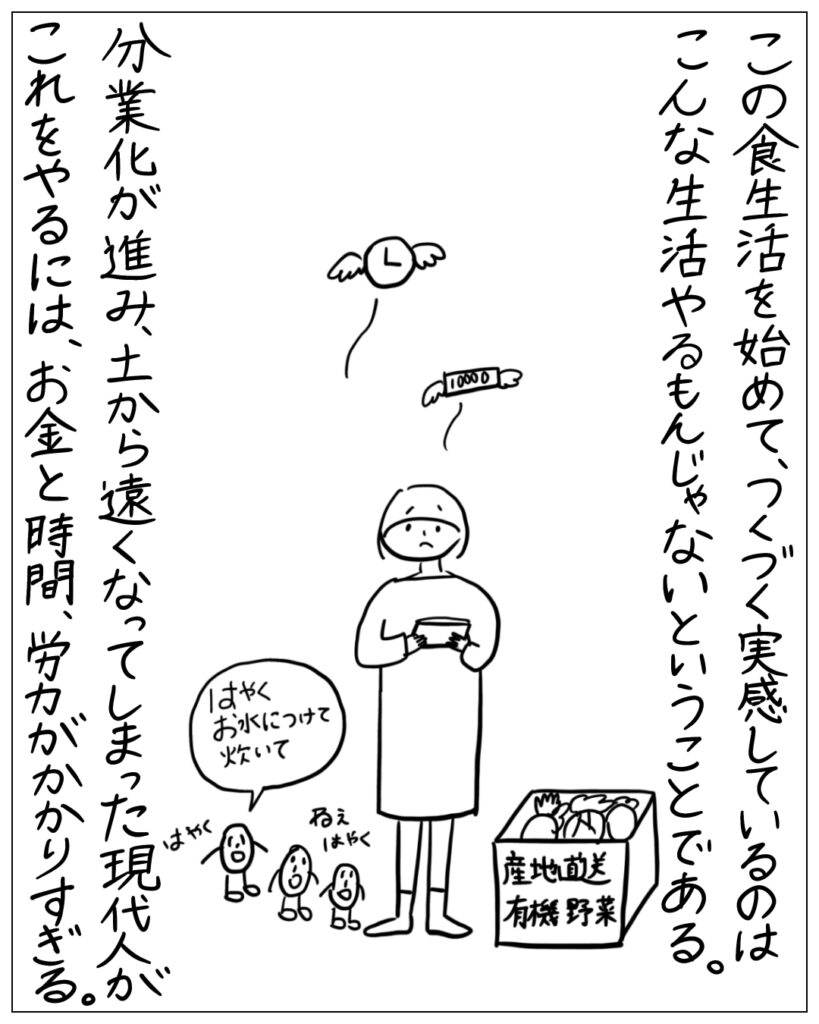 この食生活を始めて、つくづく実感しているのは
こんな生活やるもんじゃないということである。
10000
はやく
お水につけて
炊いて
はやく
ねぇ
はやく
産地直送
有機野菜
分業化が進み、土から遠くなってしまった現代人が
これをやるには、お金と時間、労力がかかりすぎる。